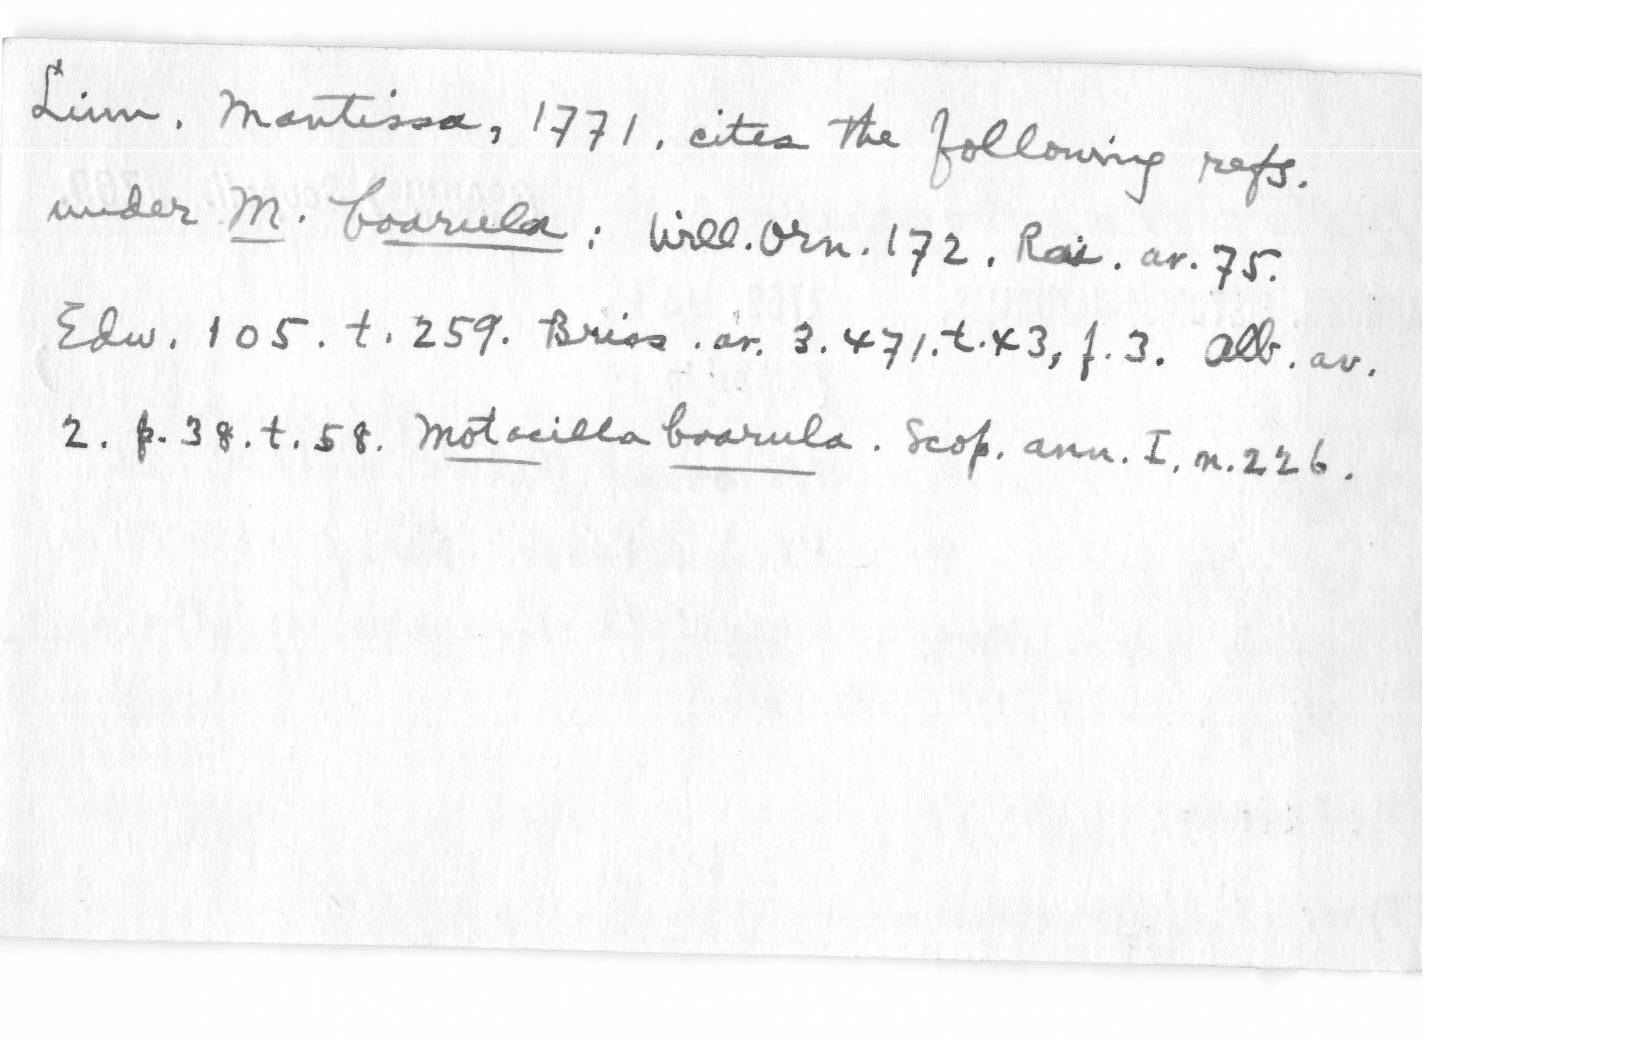 Linn. Mantissa, 1771. cites the following refs.
under M. boarula : Will. Orn. 172. Rai. av. 75.
Edw. 105. t. 259. Briss. av. 3. 471. t. 43, f. 3. Alb. av.
2. p. 38. t. 58. Motacilla boarula. Scop. ann. I. n. 226.